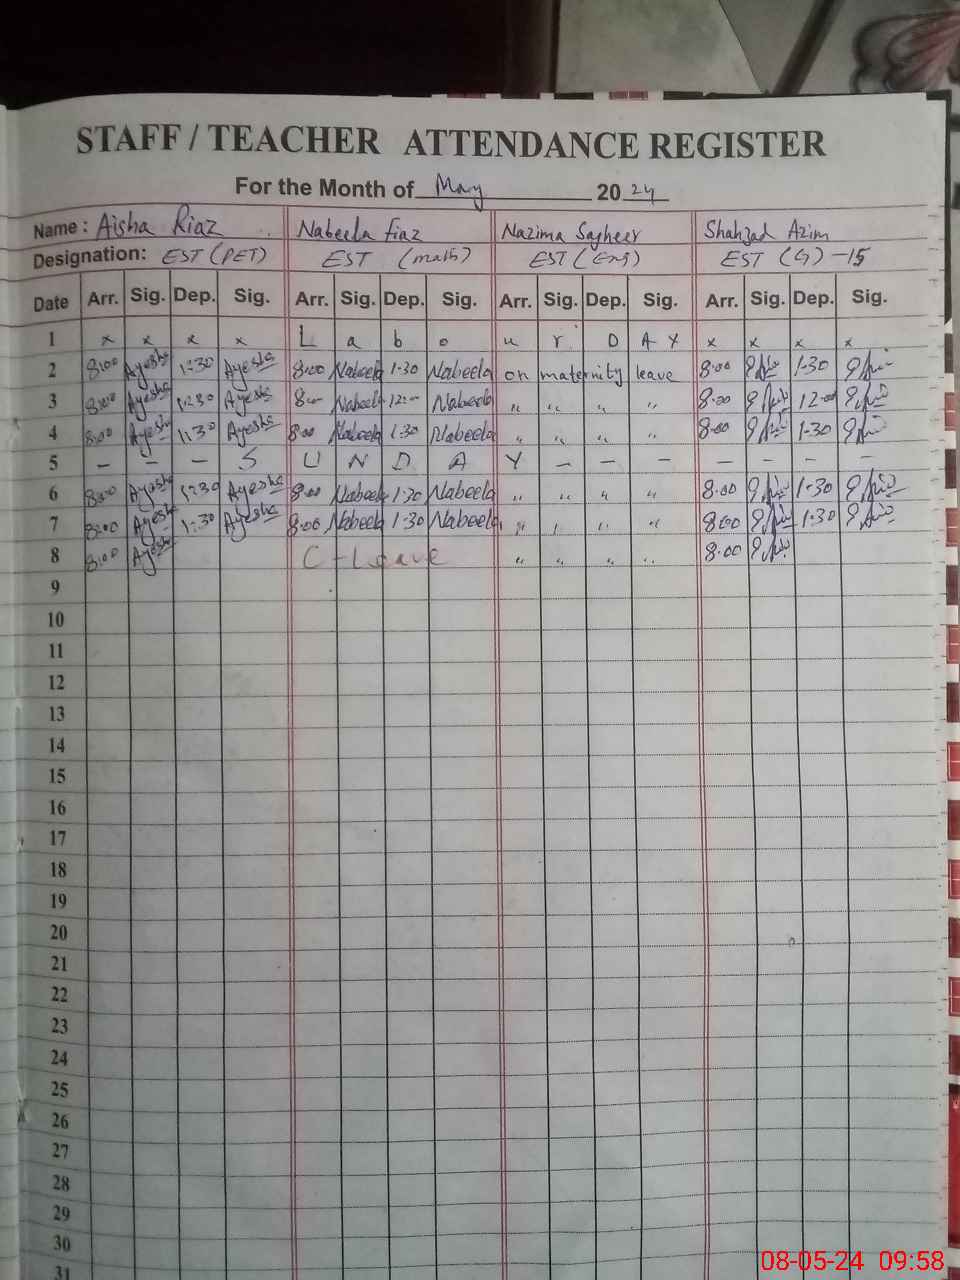 STAFF / TEACHER ATTENDANCE REGISTER
For the Month of May 2024
Name : Aisha Riaz Nabeela Fiaz Nazima Sagheer Shahzad Azim
Designation: EST (PET) EST (math) EST (Eng) EST (G) -15
Date Arr. Sig. Dep. Sig. Arr. Sig. Dep. Sig. Arr. Sig. Dep. Sig. Arr. Sig. Dep. Sig.
1 x x x x L a b o u r D A Y x x x x
2 8:00 Ayesha 1:30 Ayesha 8:00 Nabeela 1-30 Nabeela on maternity leave 8:00 1-30
3 8:00 Ayesha 1:30 Ayesha 8:00 Nabeela 12:00 Nabeela " " " " 8:00 12:00
4 8:00 Ayesha 1:30 Ayesha 8:00 Nabeela 1:30 Nabeela " " " " 8:00 1-30
5 – – – S U N D A Y – – – – – – –
6 8:00 Ayesha 1:30 Ayesha 8:00 Nabeela 1-30 Nabeela " " " " 8:00 1-30
7 8:00 Ayesha 1:30 Ayesha 8:00 Nabeela 1-30 Nabeela " " " " 8:00 1:30
8 8:00 Ayesha C-Leave " " " " 8:00
9
10
11
12
13
14
15
16
17
18
19
20
21
22
23
24
25
26
27
28
29
30
31
08-05-24 09:58